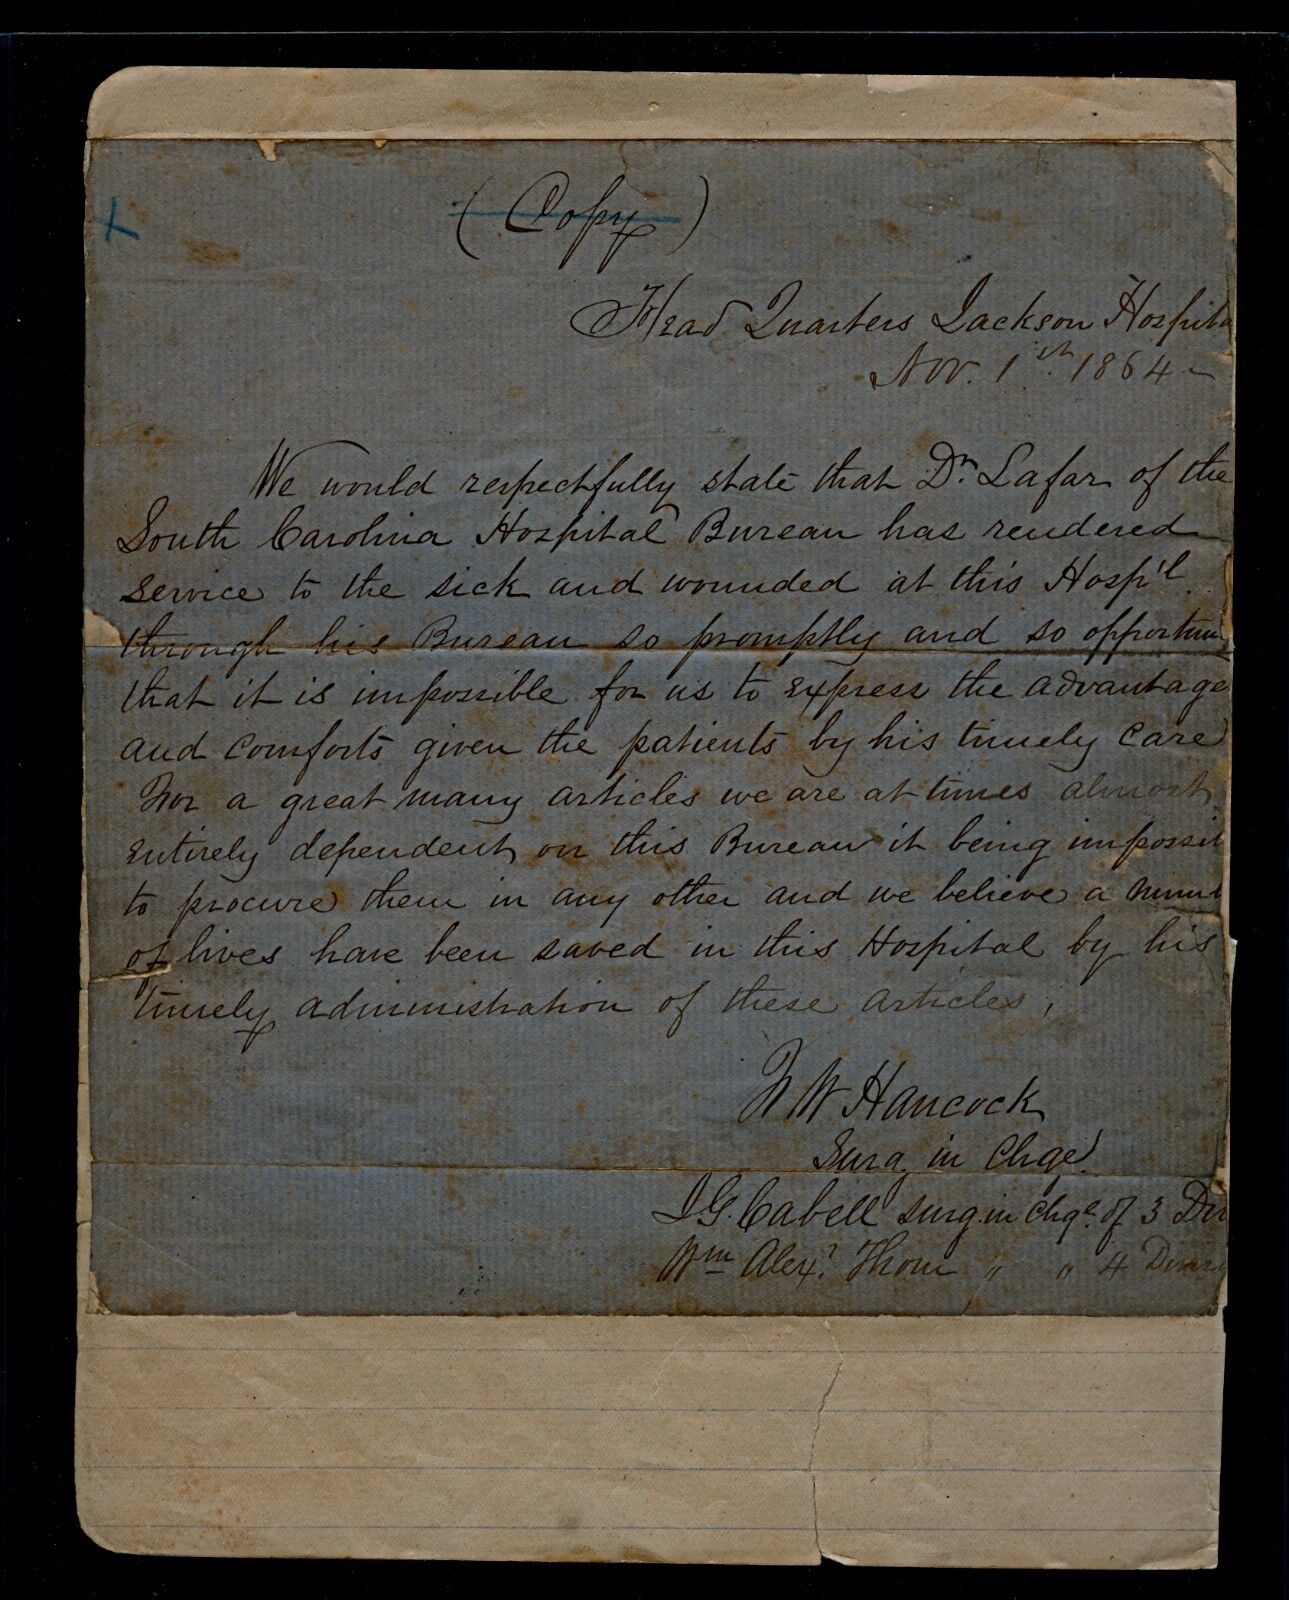 (Copy)
Head Quarters Jackson Hospita
Nov. 1st 1864 -
We would respectfully state that Dr. Lafar of the
South Carolina Hospital Bureau has rendered
service to the sick and wounded at this Hosp'l
through his Bureau so promptly and so opportun
that it is impossible for us to express the advantage
and comforts given the patients by his timely care
For a great many articles we are at times almost
entirely dependent on this Bureau it being impossib
to procure them in any other and we believe a numb
of lives have been saved in this Hospital by his
timely administration of these articles,
F W Hancock
Surg. in Chge
J G. Cabell Surg in Chge. of 3 Div
Wm Alexr. Thom " " 4